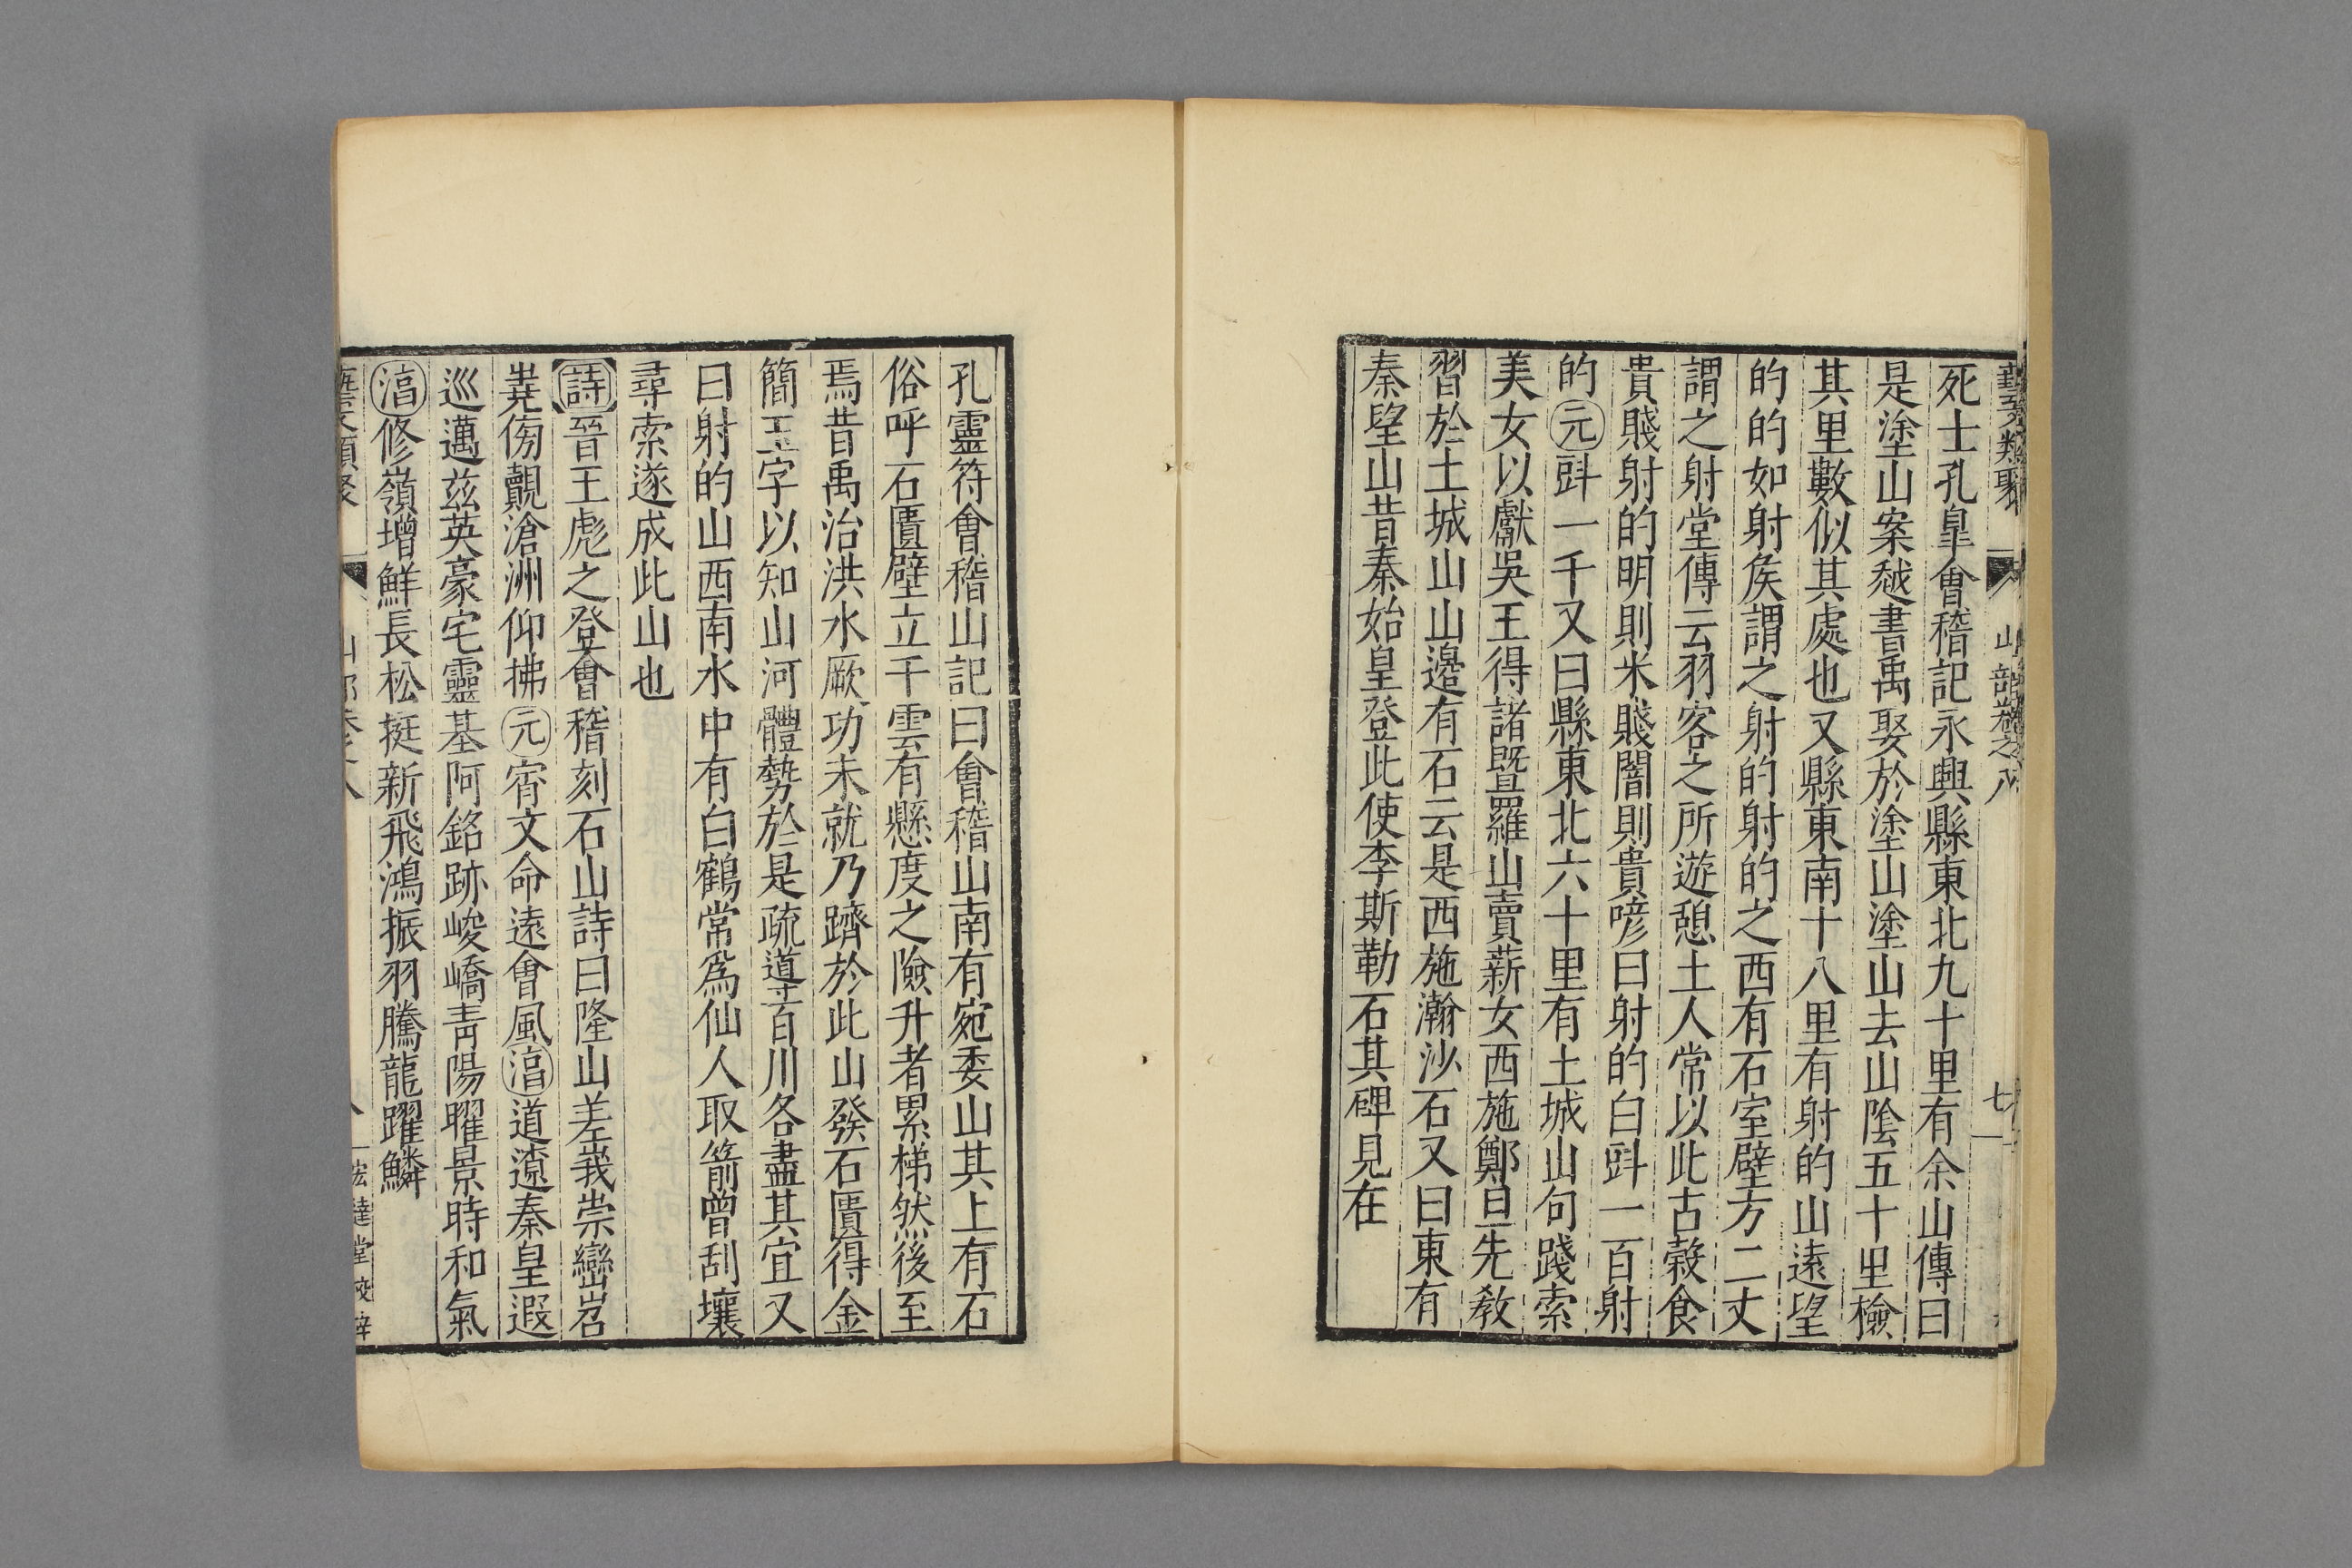 藝文類聚 山部卷之八 七
死士孔皐會稽記永興縣東北九十里有余山傳曰
是塗山案越書禹娶於塗山塗山去山陰五十里檢
其里數似其處也又縣東南十八里有射的山遠望
的的如射矦謂之射的射的之西有石室壁方二丈
謂之射堂傳云羽客之所遊憩土人常以此古穀食
貴賤射的明則米賤闇則貴諺曰射的白㪷一百射
的元㪷一千又曰縣東北六十里有土城山句踐索
美女以獻吳王得諸暨羅山賣薪女西施鄭旦先敎
習於土城山山邊有石云是西施瀚沙石又曰東有
秦望山昔秦始皇登此使李斯勒石其碑見在
孔靈符會稽山記曰會稽山南有宛委山其上有石
俗呼石匱壁立干雲有懸度之險升者累梯然後至
焉昔禹治洪水厥功未就乃躋於此山發石匱得金
簡玉字以知山河體勢於是疏導百川各盡其宜又
曰射的山西南水中有白鶴常爲仙人取箭曾刮壤
尋索遂成此山也
詩晉王彪之登會稽刻石山詩曰隆山嵳峩崇巒岧
嶤傍覿滄洲仰拂元宵文命遠會風淊道遼秦皇遐
巡邁茲英豪宅靈基阿銘跡峻嶠靑陽曜景時和氣
淊修嶺增鮮長松挺新飛鴻振羽騰龍躍鱗
八 宏達堂校